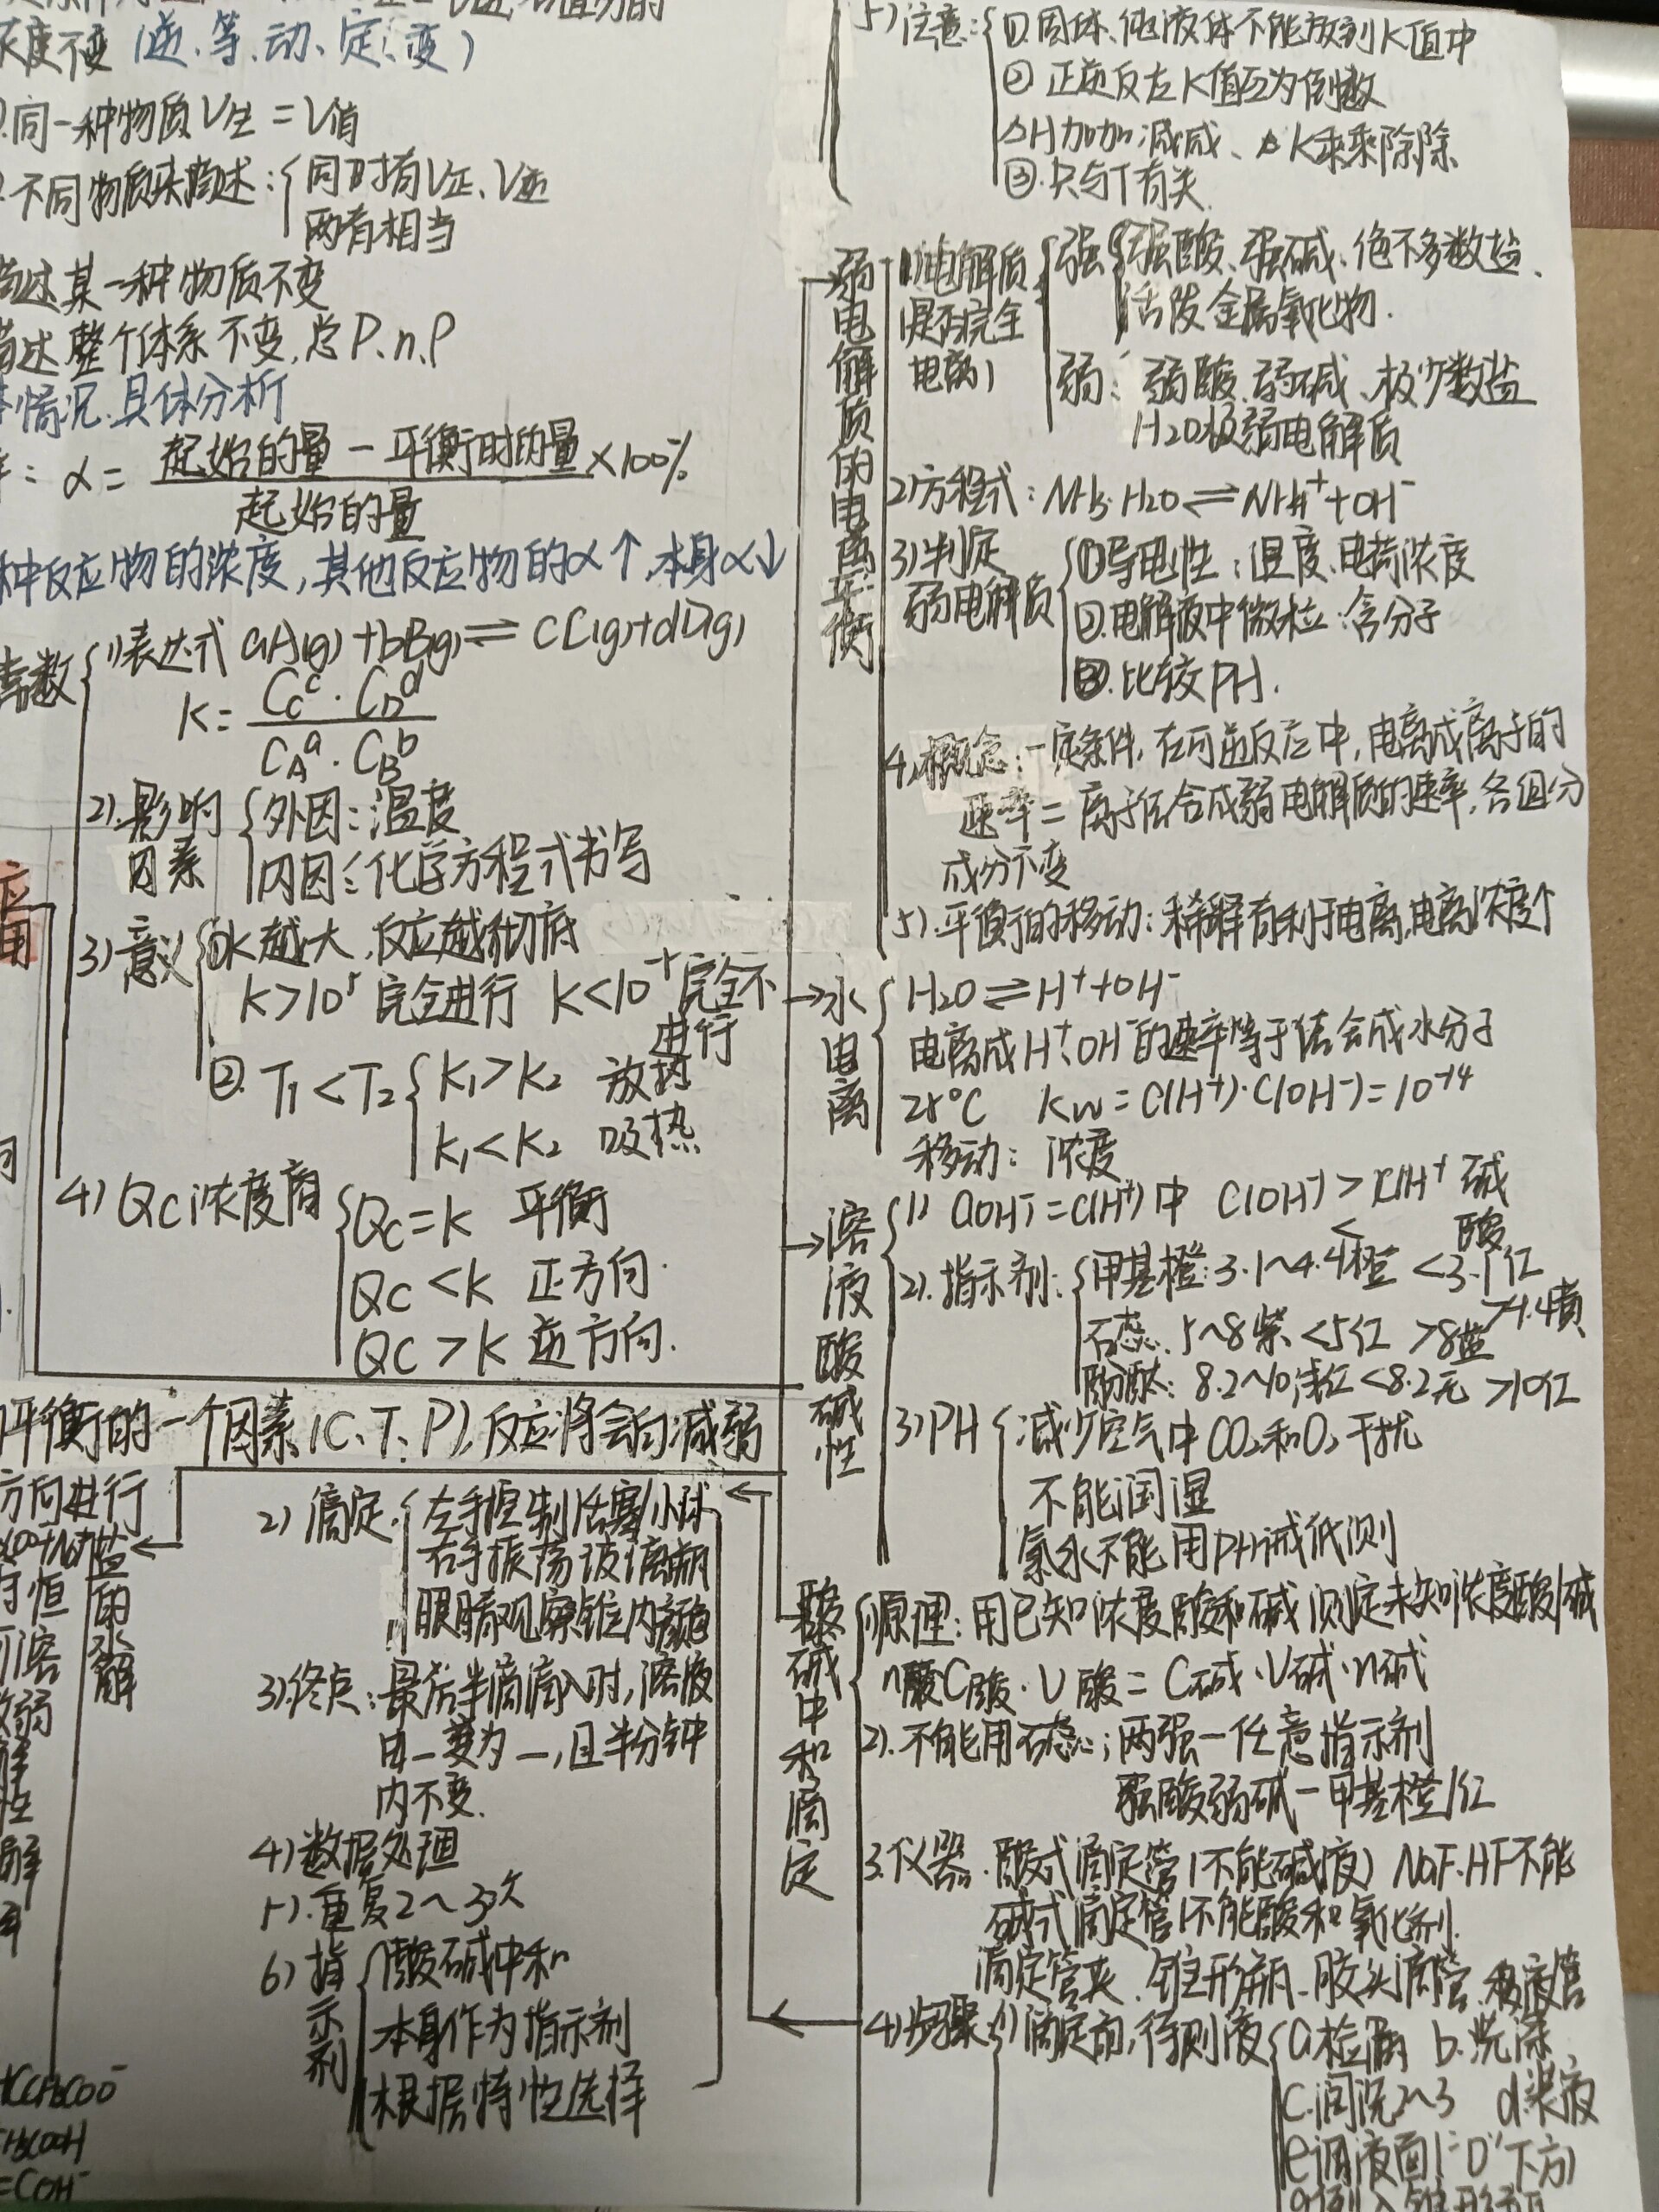 浓度不变（逆、等、动、定、变）
同一种物质V生=V消
不同物质来描述：同时有V正、V逆
两者相当
描述某一种物质不变
描述整个体系不变，总P、n、ρ
情况，具体分析
α=起始的量－平衡时的量/起始的量×100%
种反应物的浓度，其他反应物的α↑，本身α↓
常数
1)表达式 aA(g)+bB(g)⇌cC(g)+dD(g)
K=Cc^c·CD^d/CA^a·CB^b
2)影响因素
外因：温度
内因：化学方程式书写
3)意义
①K越大，反应越彻底
K>10⁵完全进行 K<10⁻⁵完全不进行
②T1<T2
K1>K2 放热
K1<K2 吸热
4)Qc浓度商
Qc=K 平衡
Qc<K 正方向.
Qc>K 逆方向.
平衡的一个因素(C、T、P)，反应将会向减弱
方向进行
盐的水解
2)滴定
左手控制活塞/小球
右手振荡玻璃瓶
眼睛观察锥内颜色
3)终点：最后半滴滴入时，溶液
由—变为—，且半分钟
内不变.
4)数据处理
5).重复2~3次
6)指示剂
酸碱中和
本身作为指示剂
根据特性选择
5)注意：
①.固体、纯液体不能放到K值中
②正逆反应K值互为倒数
△H加加减减、K乘乘除除
③.只与T有关.
弱电解质的电离平衡
1)电解质(是否完全电离)
强 强酸、强碱、绝不多数盐、
活泼金属氧化物.
弱：弱酸、弱碱、极少数盐
H2O极弱电解质
2)方程式：NH3·H2O⇌NH4⁺+OH⁻
3)判定弱电解质
①导电性：温度、电荷浓度
②.电解液中微粒：含分子
③.比较PH.
4.概念：一定条件，在可逆反应中，电离成离子的
速率=离子结合成弱电解质的速率，各组分
成份不变
5).平衡的移动：稀释有利于电离，电离浓度个
水电离
H2O⇌H⁺+OH⁻
电离成H⁺、OH⁻的速率等于结合成水分子
25°C Kw=C(H⁺)·C(OH⁻)=10⁻¹⁴
移动：浓度
溶液酸碱性
1) C(OH⁻)=C(H⁺)中 C(OH⁻)>C(H⁺ 碱
< 酸
2).指示剂：
甲基橙：3.1~4.4橙 <3.1红
>4.4黄
石蕊.5~8紫 <5红 >8蓝
酚酞：8.2~10浅红<8.2无 >10红
3)PH
减少空气中CO2和O2干扰
不能润湿
氯水不能用PH试纸测
酸碱中和滴定
1)原理：用已知浓度酸和碱测定未知浓度酸/碱
n酸C酸·V酸=C碱·V碱·n碱
2).不能用石蕊；两强—任意指示剂
强酸弱碱—甲基橙/红
3.仪器.酸式滴定管(不能碱液) NaF、HF不能
碱式滴定管(不能酸和氧化剂.
滴定管夹、锥形瓶、胶头滴管、移液管
4)步骤
1)滴定前，待测液
a检漏 b.洗涤
c.润洗2~3 d.装液
e调液面(="0"下方)
CH3COO⁻